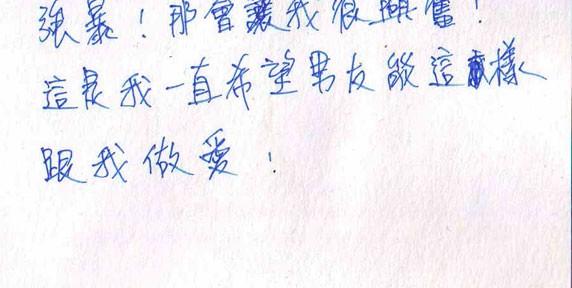 強暴！那會讓我很興奮！
這是我一直希望男友能這樣
跟我做愛！